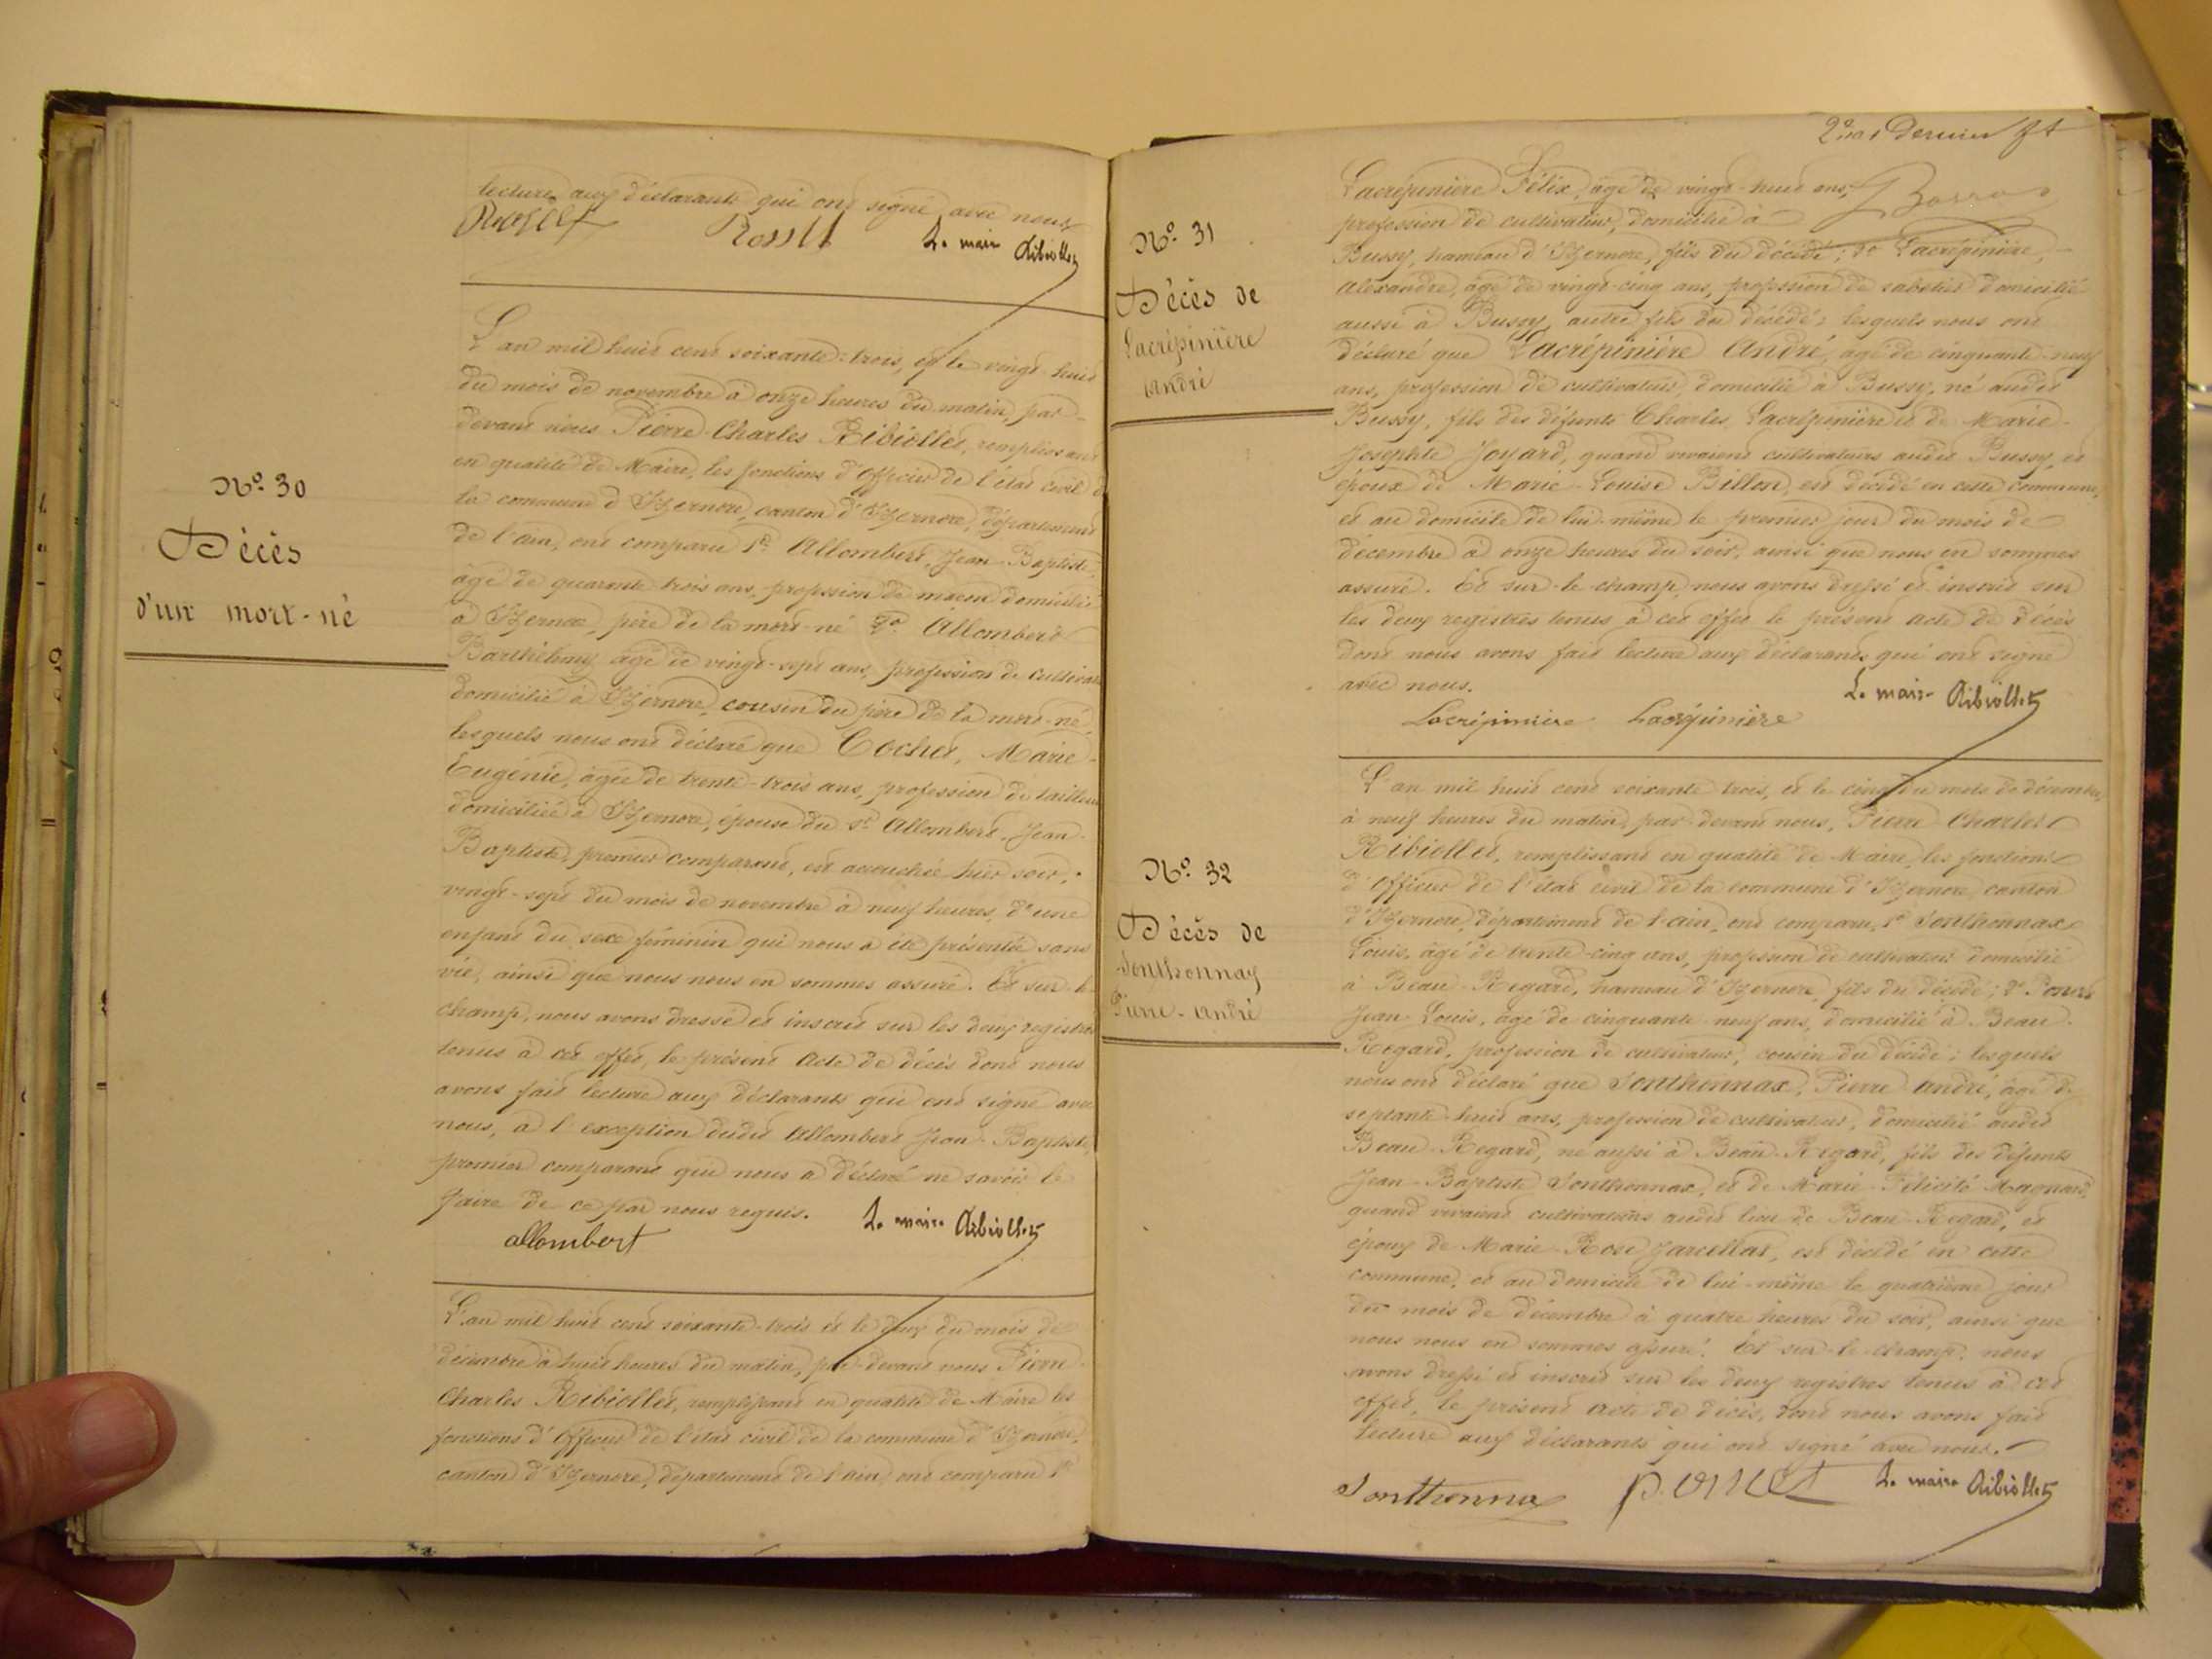 lecture aux déclarants qui ont signé avec nous
Rosset Le maire Ribiollet
N° 30
Décès
d'un mort-né
L'an mil huit cent soixante-trois, et le vingt-huit
du mois de novembre à onze heures du matin, par-
devant nous Pierre-Charles Ribiollet, remplissant
en qualité de Maire, les fonctions d'Officier de l'état civil de
la commune d'Izernore, canton d'Izernore, département
de l'ain, ont comparu 1° Allombert, Jean-Baptiste,
âgé de quarante trois ans, profession de macon domicilié
à Izernore, père de la mort-né 2° Allombert
Barthélemy âgé de vingt-sept ans, profession de cultivateur
domicilié à Izernore, cousin du père de la mort-né,
lesquels nous ont déclaré que Cochet, Marie-
Eugénie, âgée de trente-trois ans, profession de tailleuse
domiciliée à Izernore, épouse du sr Allombert, Jean-
Baptiste, premier comparant, est accouchée hier soir,
vingt-sept du mois de novembre à neuf heures, d'une
enfant du sexe féminin qui nous a été présentée sans
vie, ainsi que nous nous en sommes assuré. Et sur-le-
champ, nous avons dressé et inscrit sur les deux registres
tenus à cet effet, le présent Acte de décès dont nous
avons fait lecture aux déclarants qui ont signé avec
nous, à l'exception dudit Allombert Jean-Baptiste,
premier comparant qui nous a déclaré ne savoir le
faire de ce par nous requis. Le maire Ribiollet
allombert
L'an mil huit cent soixante-trois et le deux du mois de
décembre à huit heures du matin, par-devant nous Pierre-
Charles Ribiollet, remplissant en qualité de Maire les
fonctions d'Officier de l'état civil de la commune d'Izernore,
canton d'Izernore, département de l'ain, ont comparu 1°
Dernier
N° 31
Décès de
Lacrépinière
André
Lacrépinière Félix, âgé de vingt-huit ans,
profession de cultivateur, domicilié à
Bussy, hameau d'Izernore, fils du décédé; 2° Lacrépinière,
Alexandre, âgé de vingt-cinq ans, profession de sabotier domicilié
aussi à Bussy, autre fils du décédé; lesquels nous ont
déclaré que Lacrépinière André, âgé de cinquante-neuf
ans, profession de cultivateur, domicilié à Bussy, né audit
Bussy, fils des défunts Charles Lacrépinière et de Marie-
Josephte Joyard, quand vivaient cultivateurs audit Bussy, et
époux de Marie-Louise Billon, est décédé en cette commune,
et au domicile de lui-même le premier jour du mois de
décembre à onze heures du soir, ainsi que nous en sommes
assuré. Et sur-le-champ, nous avons dressé et inscrit sur
les deux registres tenus à cet effet le présent acte de décès
dont nous avons fait lecture aux déclarants qui ont signé
avec nous. Le maire Ribiollet
Lacrépinière Lacrépinière
N° 32
Décès de
Sonthonnax
Pierre-André
L'an mil huit cent soixante trois, et le cinq du mois de décembre,
à neuf heures du matin, par-devant nous, Pierre Charles
Ribiollet, remplissant en qualité de Maire, les fonctions
d'Officier de l'état civil de la commune d'Izernore, canton
d'Izernore, département de l'ain, ont comparu, 1° Sonthonnax
Louis, âgé de trente-cinq ans, profession de cultivateur domicilié
à Beau-Regard, hameau d'Izernore, fils du décédé; 2° Poncet
Jean-Louis, âgé de cinquante-neuf ans, domicilié à Beau-
Regard, profession de cultivateur, cousin du décédé; lesquels
nous ont déclaré que Sonthonnax, Pierre André, âgé de
septante-huit ans, profession de cultivateur, domicilié audit
Beau-Regard, né aussi à Beau-Regard, fils des défunts
Jean-Baptiste Sonthonnax, et de Marie-Félicité Magnard,
quand vivaient cultivateurs audit lieu de Beau-Regard, et
époux de Marie-Rose Jarcellat, est décédé en cette
commune, et au domicile de lui-même le quatrième jour
du mois de décembre à quatre heures du soir, ainsi que
nous nous en sommes assuré. Et sur-le-champ, nous
avons dressé et inscrit sur les deux registres tenus à cet
effet, le présent acte de décès, dont nous avons fait
lecture aux déclarants qui ont signé avec nous.
Sonthonnax poncet Le maire Ribiollet